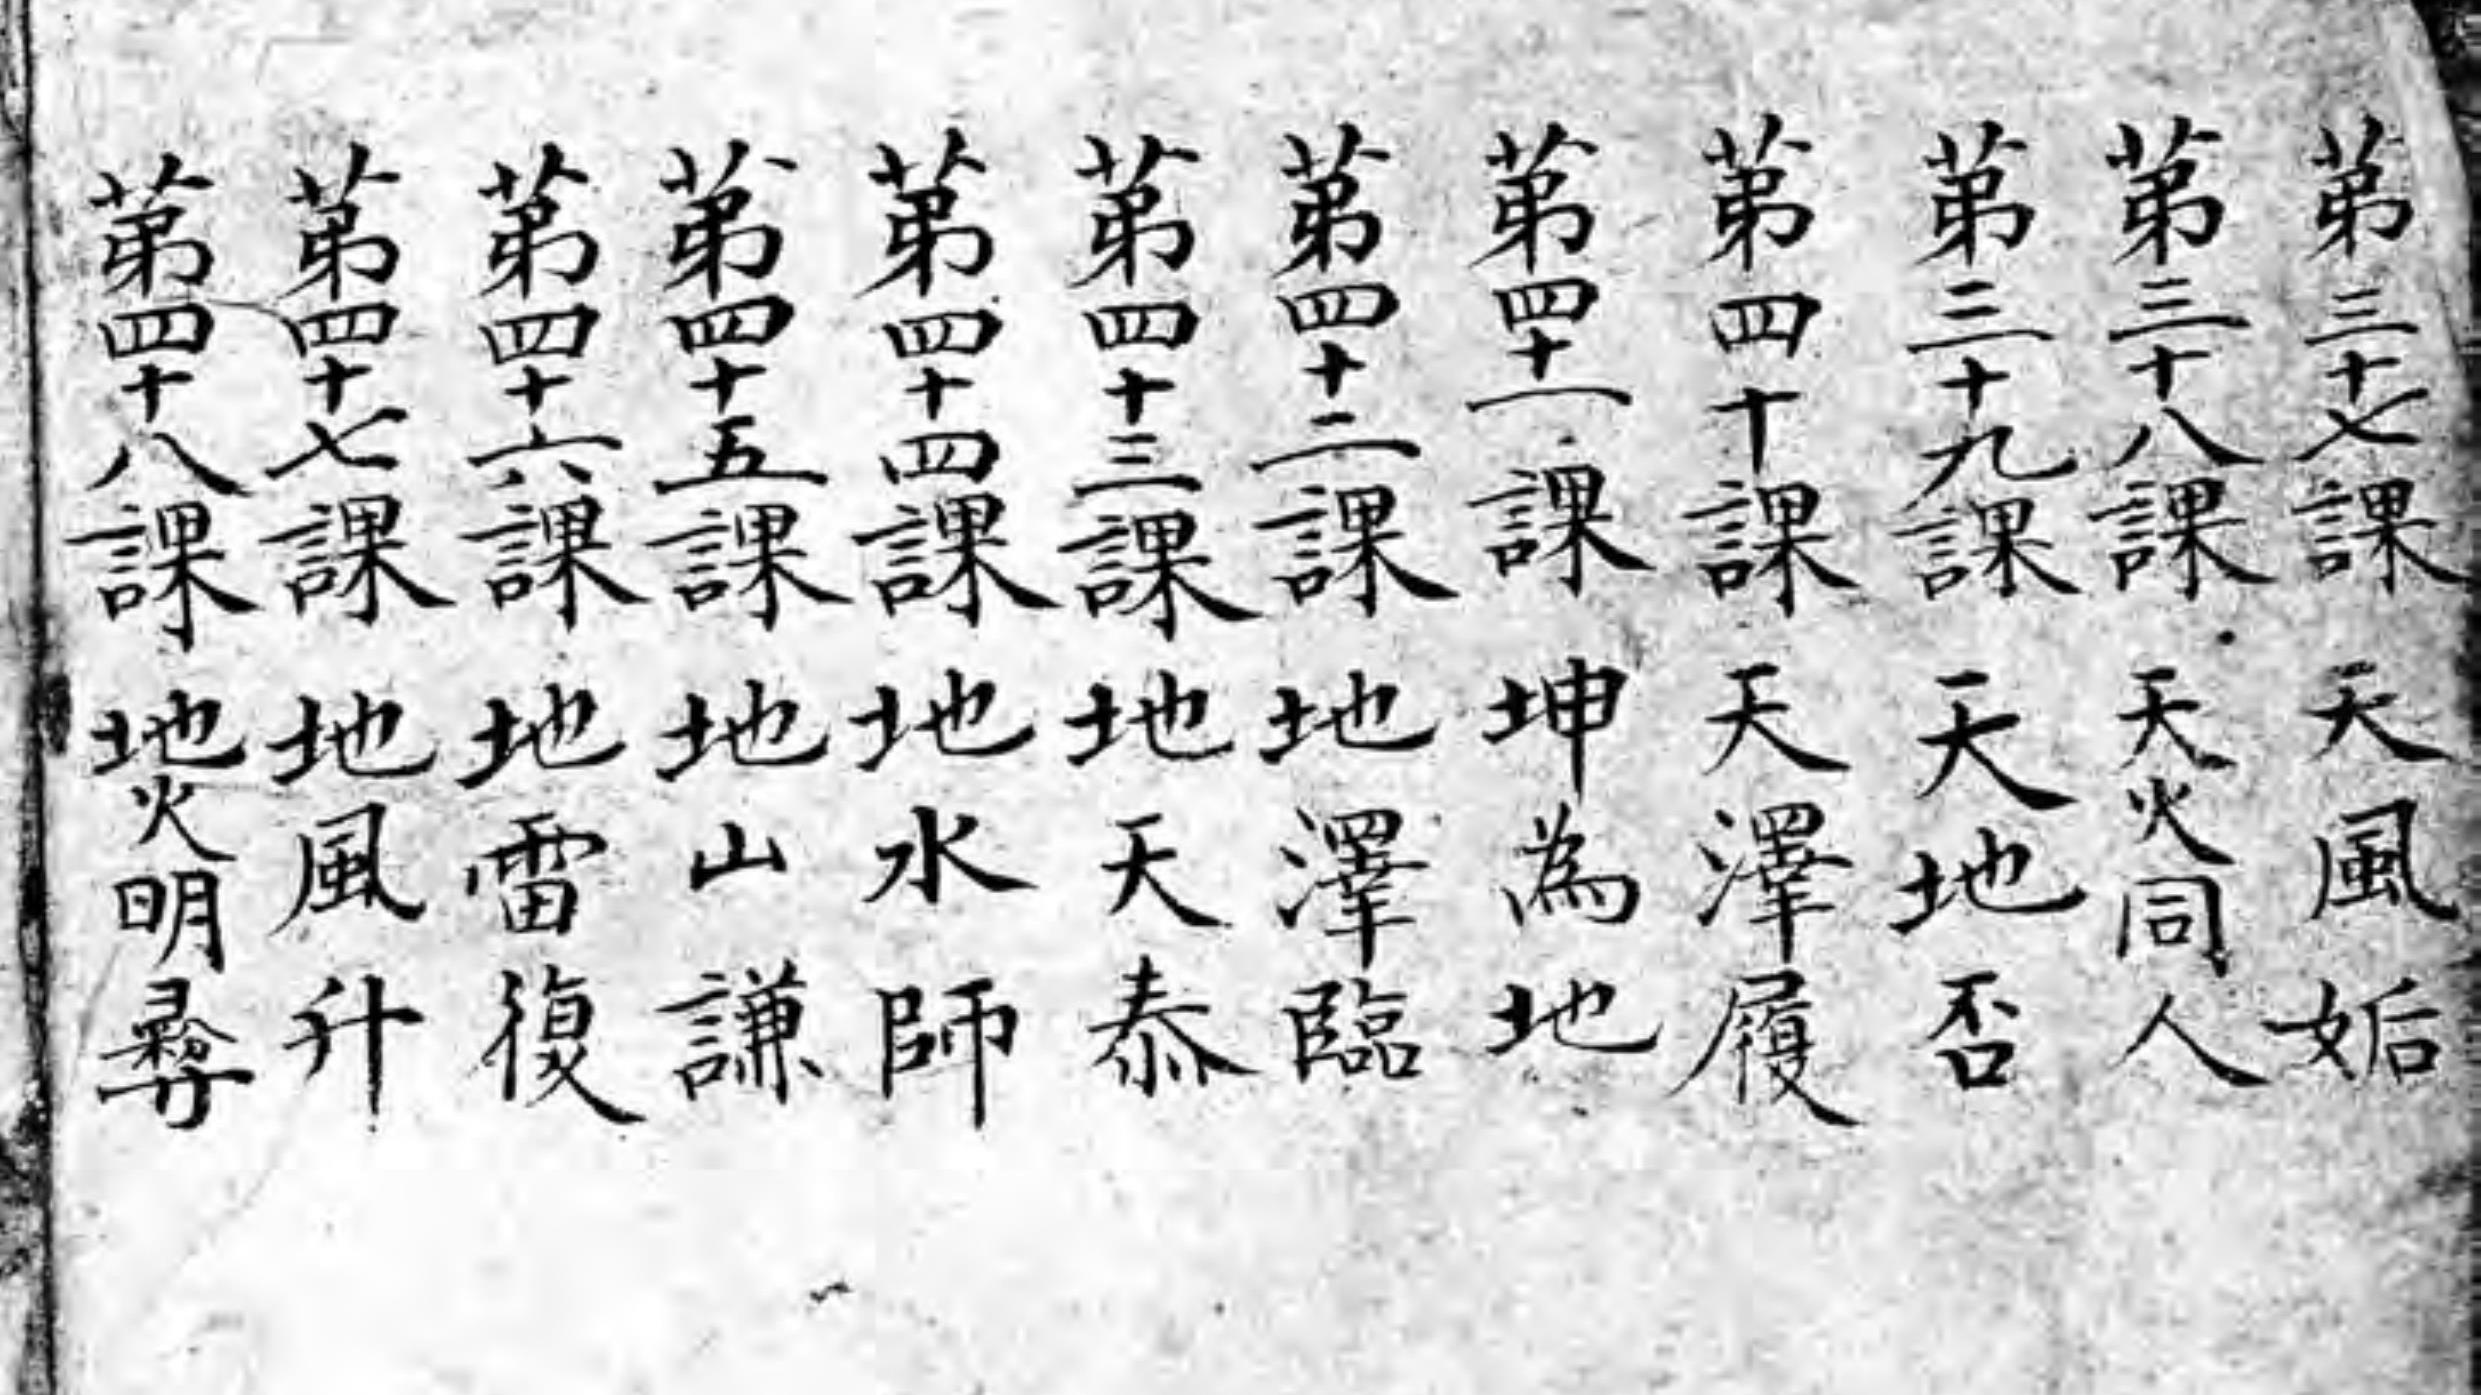 第三十七課 天風姤
第三十八課 天火同人
第三十九課 天地否
第四十課 天澤履
第四十一課 坤為地
第四十二課 地澤臨
第四十三課 地天泰
第四十四課 地水師
第四十五課 地山謙
第四十六課 地雷復
第四十七課 地風升
第四十八課 地火明彞